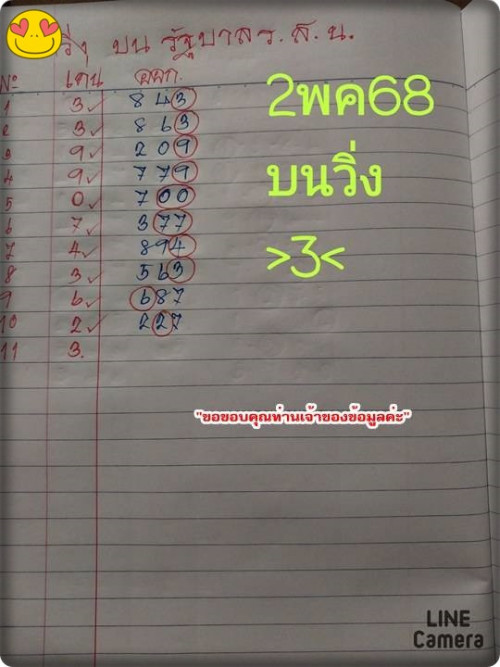 วิ่ง บน รัฐบาล ร.ส.น.
Nº เด่น ออก.
1 3✓ 843
2 3✓ 863
3 9✓ 209
4 9✓ 779
5 0✓ 700
6 7✓ 377
7 4✓ 894
8 3✓ 563
9 6✓ 687
10 2✓ 227
11 3.
2พค68
บนวิ่ง
>3<
"ขอขอบคุณท่านเจ้าของข้อมูลค่ะ"
LINE
Camera